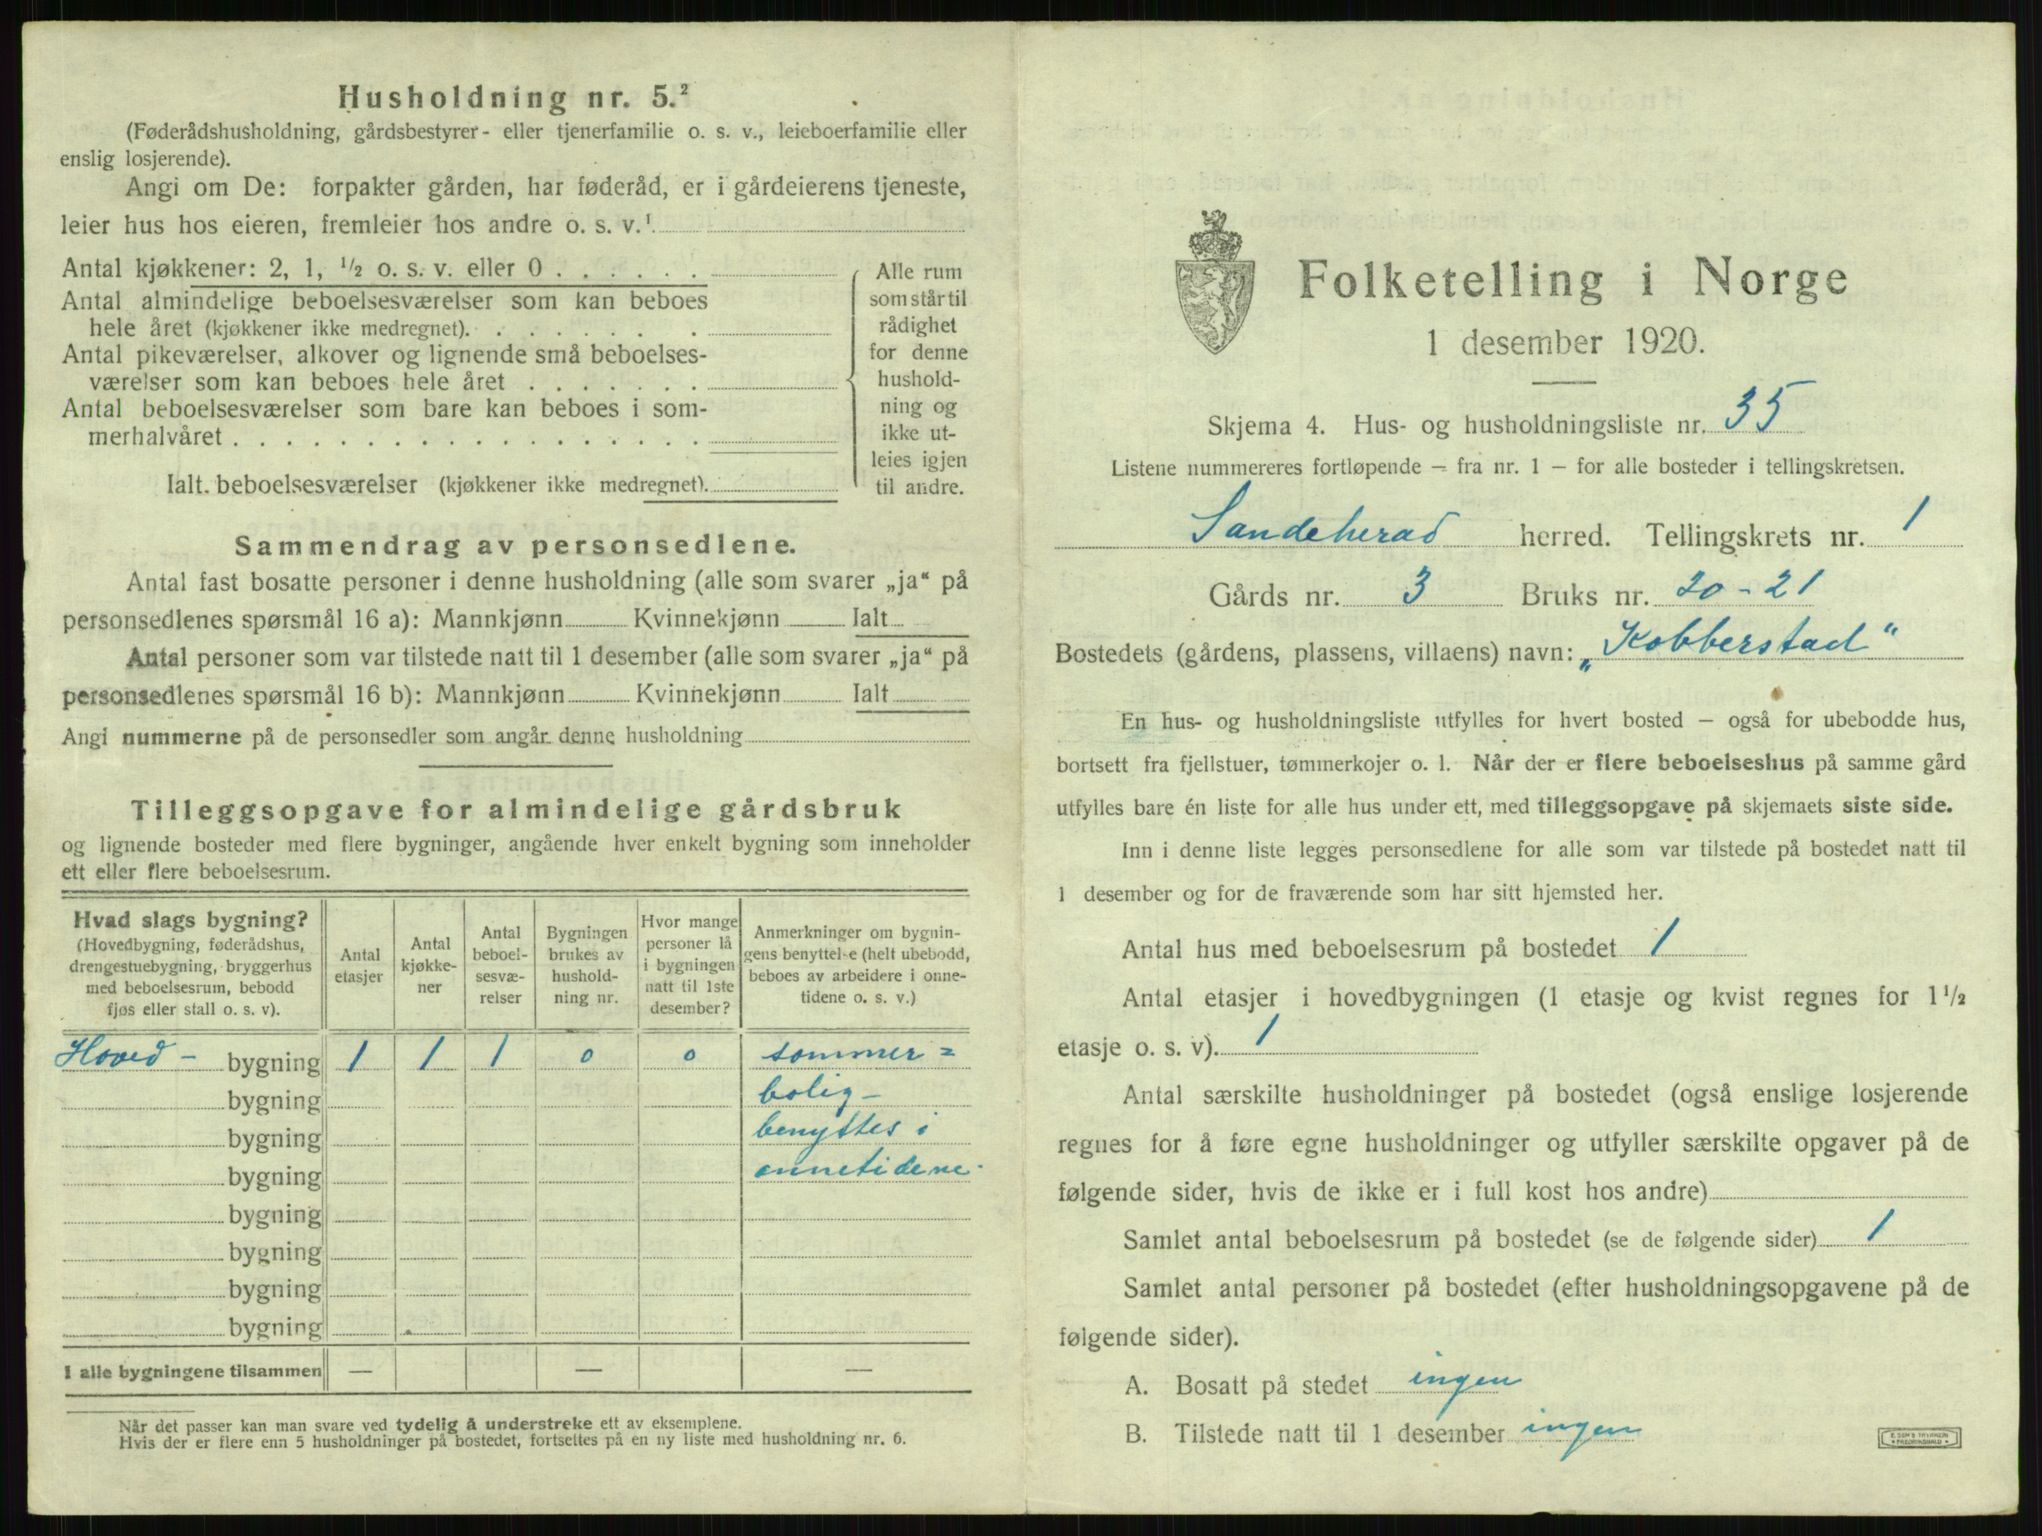 Husholdning nr. 5.²
(Føderådshusholdning, gårdsbestyrer- eller tjenerfamilie o. s. v., leieboerfamilie eller
enslig losjerende).
Angi om De: forpakter gården, har føderåd, er i gårdeierens tjeneste,
leier hus hos eieren, fremleier hos andre o. s. v.¹
Antal kjøkkener: 2, 1, ½ o. s. v. eller 0 . . . . . .
Antal almindelige beboelsesværelser som kan beboes
hele året (kjøkkener ikke medregnet). . . . . . . . .
Antal pikeværelser, alkover og lignende små beboelses-
værelser som kan beboes hele året . . . . . . .
Antal beboelsesværelser som bare kan beboes i som-
merhalvåret . . . . . . . . . . . . . . . . . .
Ialt. beboelsesværelser (kjøkkener ikke medregnet).
Alle rum
som står til
rådighet
for denne
hushold-
ning og
ikke ut-
leies igjen
til andre.
Sammendrag av personsedlene.
Antal fast bosatte personer i denne husholdning (alle som svarer „ja“ på
personsedlenes spørsmål 16 a): Mannkjønn Kvinnekjønn Ialt
Antal personer som var tilstede natt til 1 desember (alle som svarer „ja“ på
personsedlenes spørsmål 16 b): Mannkjønn Kvinnekjønn Ialt
Angi nummerne på de personsedler som angår denne husholdning
Tilleggsopgave for almindelige gårdsbruk
og lignende bosteder med flere bygninger, angående hver enkelt bygning som inneholder
ett eller flere beboelsesrum.
Hvad slags bygning?
(Hovedbygning, føderådshus,
drengestuebygning, bryggerhus
med beboelsesrum, bebodd
fjøs eller stall o. s. v).
Antal
etasjer
Antal
kjøkke-
ner
Antal
beboel-
sesvæ-
relser
Bygningen
brukes av
hushold-
ning nr.
Hvor mange
personer lå
i bygningen
natt til 1ste
desember?
Anmerkninger om bygnin-
gens benyttelse (helt ubebodd,
beboes av arbeidere i onne-
tidene o. s. v.)
Hoved- bygning 1 1 1 0 0 sommer=
bygning bolig-
bygning benyttes i
bygning onnetidene.
bygning
bygning
bygning
bygning
I alle bygningene tilsammen — — —
Når det passer kan man svare ved tydelig å understreke ett av eksemplene.
Hvis der er flere enn 5 husholdninger på bostedet, fortsettes på en ny liste med husholdning nr. 6.
Folketelling i Norge
1 desember 1920.
Skjema 4. Hus- og husholdningsliste nr. 35
Listene nummereres fortløpende – fra nr. 1 – for alle bosteder i tellingskretsen.
Sandeherad herred. Tellingskrets nr. 1
Gårds nr. 3 Bruks nr. 20-21
Bostedets (gårdens, plassens, villaens) navn: „Kobberstad“
En hus- og husholdningsliste utfylles for hvert bosted – også for ubebodde hus,
bortsett fra fjellstuer, tømmerkojer o. l. Når der er flere beboelseshus på samme gård
utfylles bare én liste for alle hus under ett, med tilleggsopgave på skjemaets siste side.
Inn i denne liste legges personsedlene for alle som var tilstede på bostedet natt til
1 desember og for de fraværende som har sitt hjemsted her.
Antal hus med beboelsesrum på bostedet 1
Antal etasjer i hovedbygningen (1 etasje og kvist regnes for 1½
etasje o. s. v). 1
Antal særskilte husholdninger på bostedet (også enslige losjerende
regnes for å føre egne husholdninger og utfyller særskilte opgaver på de
følgende sider, hvis de ikke er i full kost hos andre)
Samlet antal beboelsesrum på bostedet (se de følgende sider) 1
Samlet antal personer på bostedet (efter husholdningsopgavene på de
følgende sider).
A. Bosatt på stedet ingen
B. Tilstede natt til 1 desember ingen